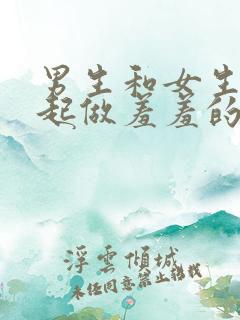 男生和女生
起做羞羞的
浮云倾城
未经同意禁止转载